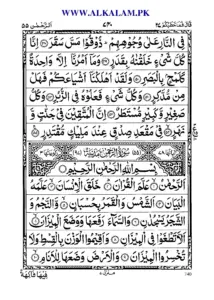 WWW.ALKALAM.PK
قال فما خطبكم ٢٧
الرحمن ٥٥
فِي النَّارِ عَلٰى وُجُوْهِهِمْ ذُوْقُوْا مَسَّ سَقَرَ اِنَّا
كُلَّ شَيْءٍ خَلَقْنٰهُ بِقَدَرٍ وَمَآ اَمْرُنَآ اِلَّا وَاحِدَةٌ
كَلَمْحٍ بِالْبَصَرِ وَلَقَدْ اَهْلَكْنَآ اَشْيَاعَكُمْ فَهَلْ
مِنْ مُّدَّكِرٍ وَكُلُّ شَيْءٍ فَعَلُوْهُ فِي الزُّبُرِ وَكُلُّ
صَغِيْرٍ وَّكَبِيْرٍ مُّسْتَطَرٌ اِنَّ الْمُتَّقِيْنَ فِيْ جَنّٰتٍ وَّ
نَهَرٍ فِيْ مَقْعَدِ صِدْقٍ عِنْدَ مَلِيْكٍ مُّقْتَدِرٍ
سُوْرَةُ الرَّحْمٰنِ
بِسْمِ اللهِ الرَّحْمٰنِ الرَّحِيْمِ
اَلرَّحْمٰنُ عَلَّمَ الْقُرْاٰنَ خَلَقَ الْاِنْسَانَ عَلَّمَهُ
الْبَيَانَ اَلشَّمْسُ وَالْقَمَرُ بِحُسْبَانٍ وَّالنَّجْمُ وَ
الشَّجَرُ يَسْجُدٰنِ وَالسَّمَآءَ رَفَعَهَا وَوَضَعَ الْمِيْزَانَ
اَلَّا تَطْغَوْا فِي الْمِيْزَانِ وَاَقِيْمُوا الْوَزْنَ بِالْقِسْطِ وَلَا
تُخْسِرُوا الْمِيْزَانَ وَالْاَرْضَ وَضَعَهَا لِلْاَنَامِ
فِيْهَا فَاكِهَةٌ